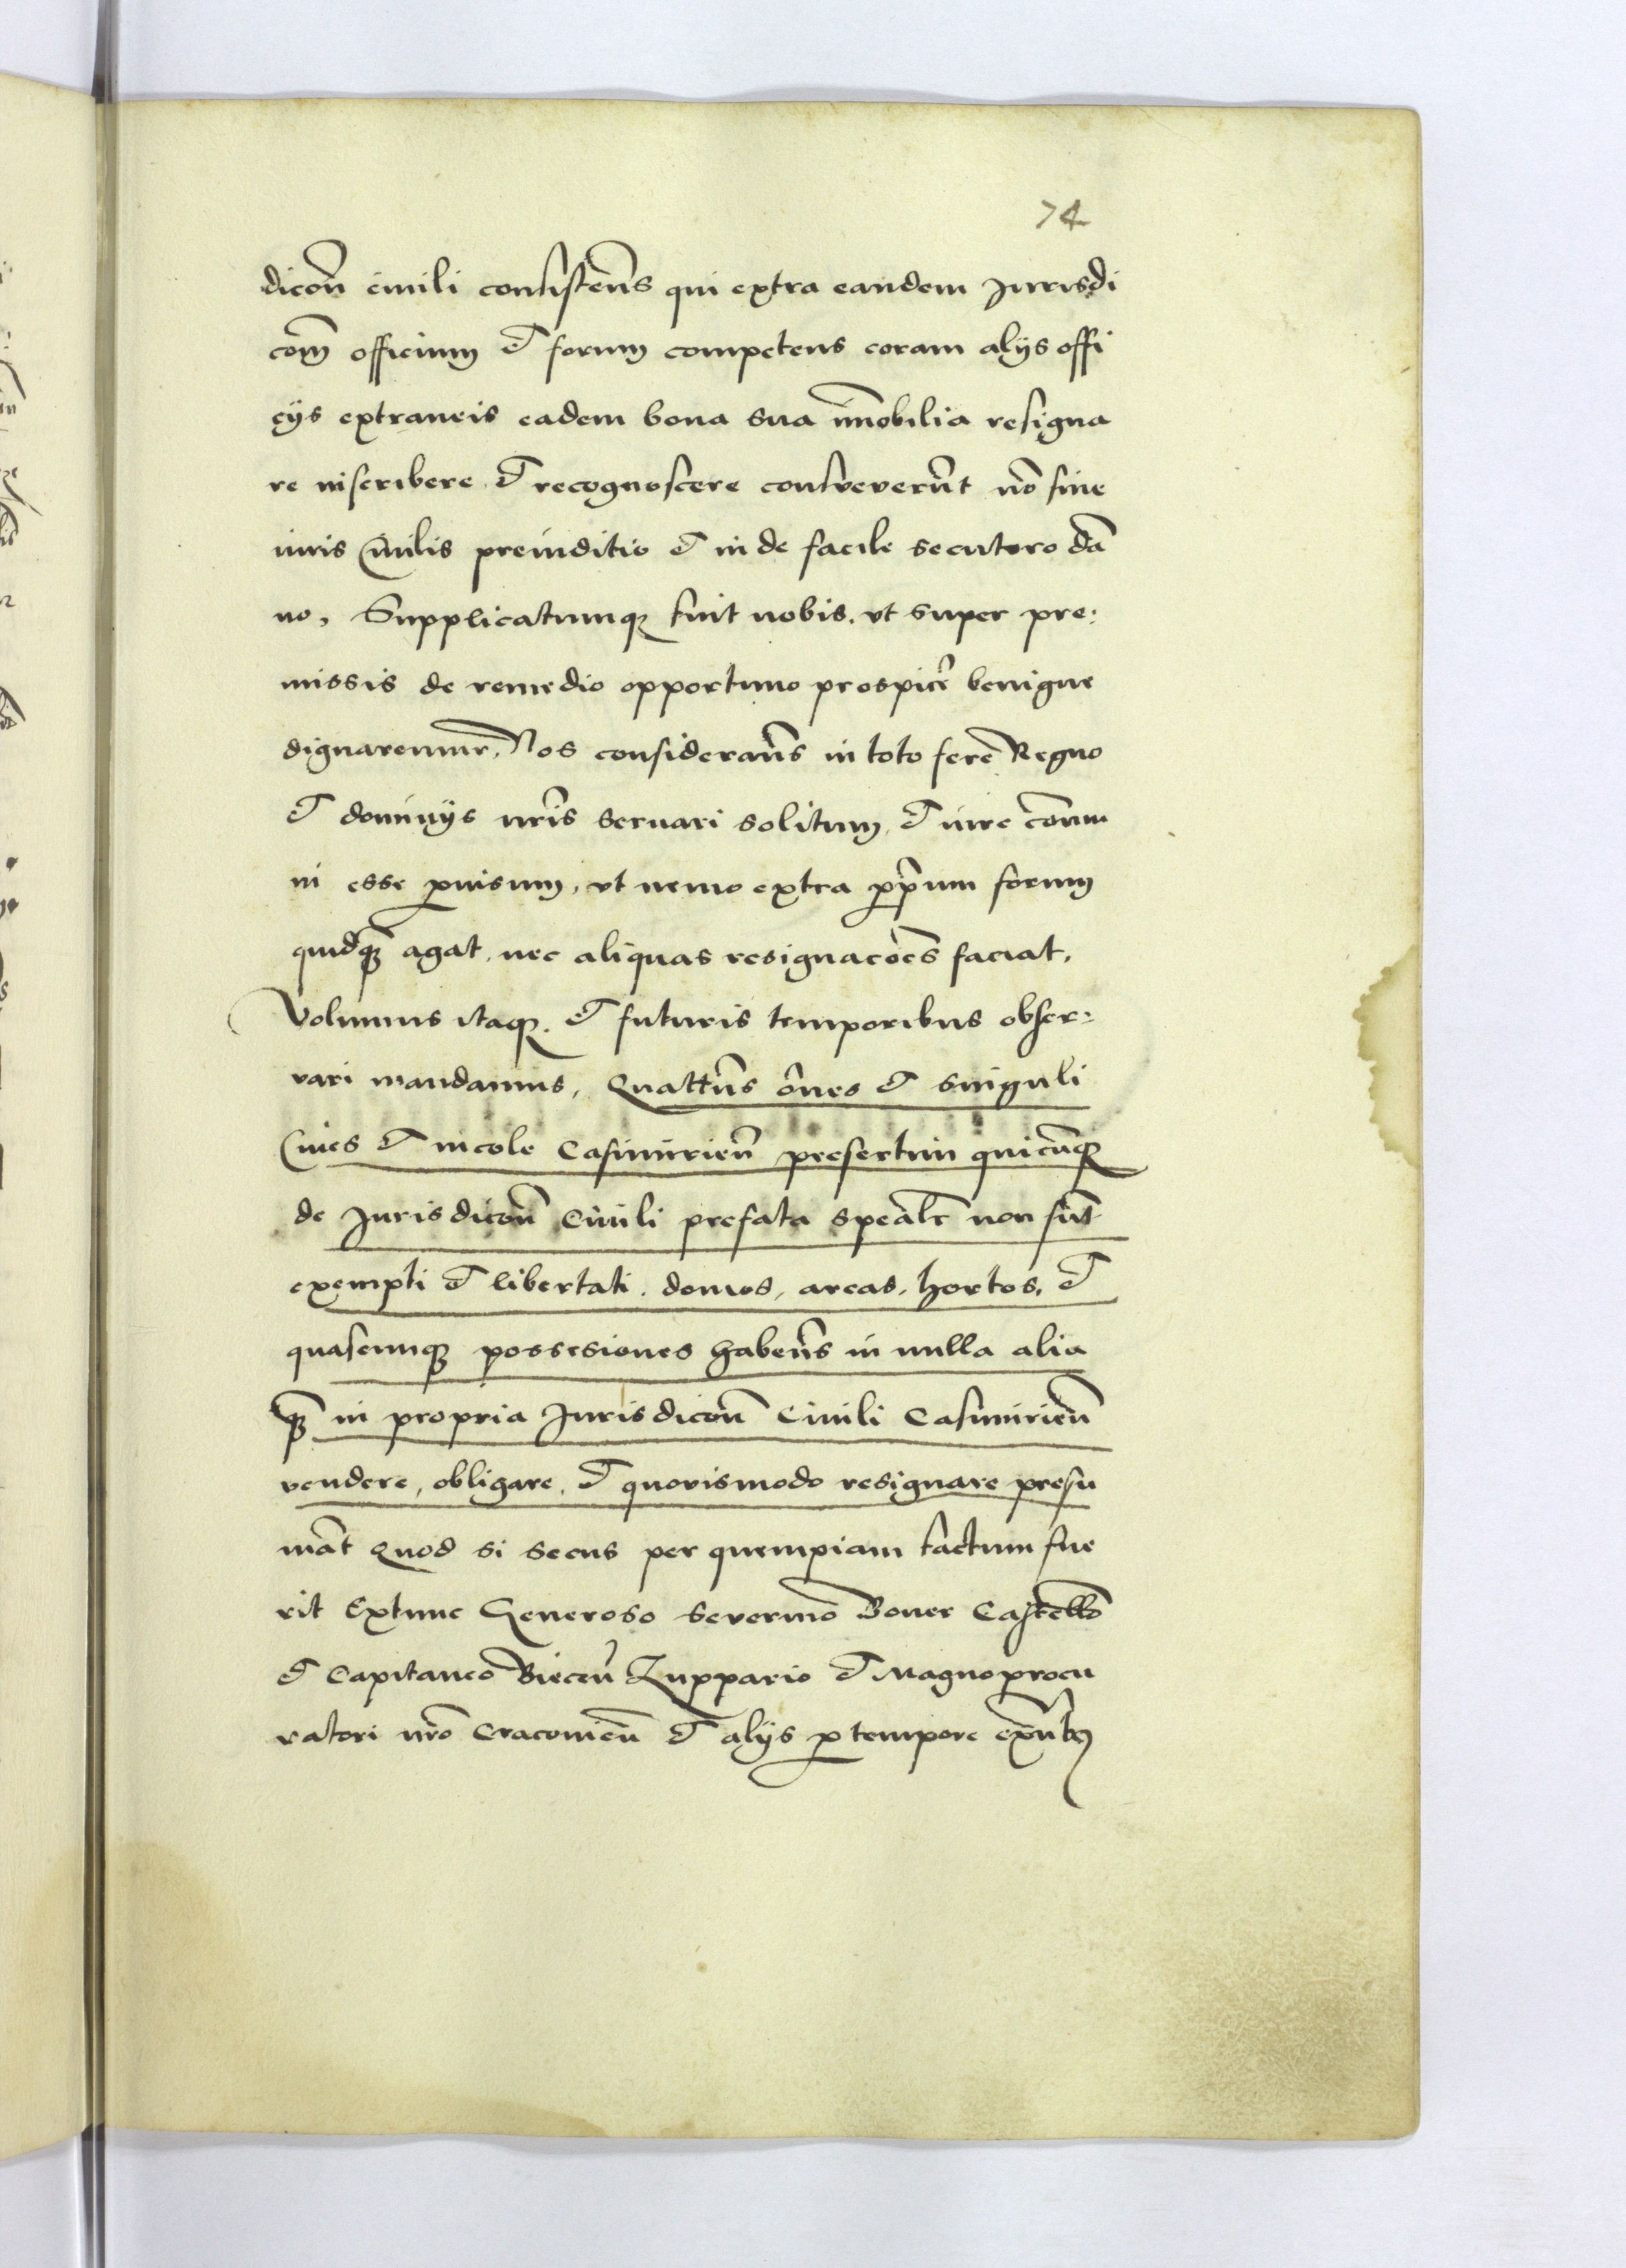 74
dicoñ ciuili consisteñs qui extra eandem Jurisdi
com̃ officium et forum competens coram alijs offi
cijs extraneis eadem bona sua im̃obilia resigna
re inscribere et recognoscere consveverũt nõ sine
iuris Ciuilis preiuditio et in de facile secuturo dã
no, Supplicatumqȝ fuit nobis, vt super pre:
missis de remedio opportuno prospicẽ benigne
dignaremur, Nos considerañs in toto ferè Regno
et dominijs nr̃is seruari solitum, et iure com̃u
ni esse ꝓuisum, vt nemo extra ꝓpr̃ium forum
quidqȝ agat, nec aliquas resignacões faciat,
Volumus itaqȝ, et futuris temporibus obser:
vari mandamus, Quatt̃us oẽs et singuli
Ciues et incole Casimirieñ presertim quicũqȝ
de Jurisdicoñ Ciuili prefata speal̃r non sũt
exempti et libertati, domos, areas, hortos, et
quascunqȝ possesiones habeñs in nulla alia
qȝ̃ in propria Jurisdicoñ Ciuili Casimirieñ
vendere, obligare, et quovismodo resignare presu
mãt Quod si secus per quempiam factum fue
rit Extunc Generoso Severino Boner Castellõ
et Capitaneo Bieceñ Zuppario et Magnoprocu
ratori nr̃o Cracovieñ et alijs ꝓ tempore exñtibȝ